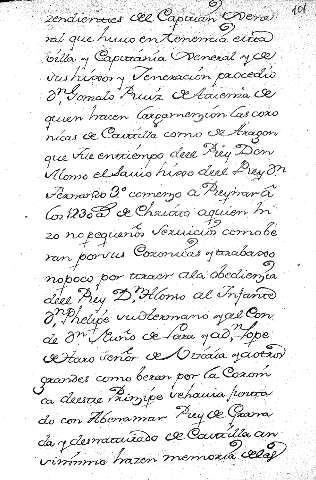 101
zendientes del Capitan Gene
ral que huuo en tenencia esta
villa y Capitania General y de
sus hixos y Generacion procedio
Dn Gonzalo Ruiz de Atienza de
quien hazen larga menzion las coro
nicas de Castilla como de Aragon
que fue en tiempo del Rey Don
Alonso el Sauio hixo del Rey Dn
Fernando 3º comenzo a Reynar â
los 1230 de Christo a quien hi
zo no pequeños seruicios como be
ran por sus Coronicas y trabaxo
no poco por traer a la obediencia
del Rey Dn Alonso al Infante
Dn Phelipe su Hermano y al Con
de Dn Nuño de Lara y a Dn Lope
de Haro señor de Vizcaia y a otros
grandes como beran por la Coroni
ca de este Prinzipe se hauia
do con Abenamar Rey de Grana
da y desnaturado de Castilla an
si mismo hazen memoria de las